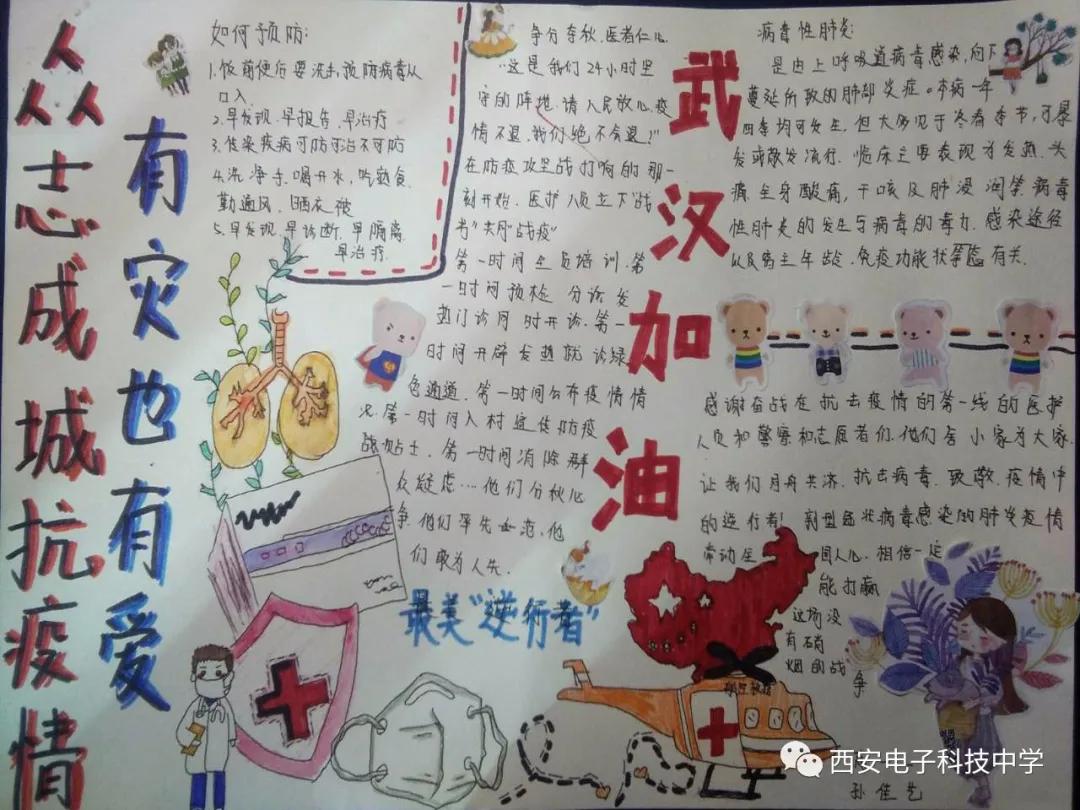 众志成城抗疫情
有灾也有爱
如何预防:
1.饭前便后要洗手,预防病毒从
口入.
2.早发现.早报告.早治疗
3.传染疾病可防可治不可防
4.洗净手.喝开水,吃熟食,
勤通风.晒衣被
5.早发现.早诊断.早隔离.
早治疗.
争分夺秋.医者仁心.
"这是我们24小时里
守的阵地.请人民放心.疫
情不退.我们绝不会退!"
在防疫攻坚战打响的那一
刻开始.医护人员立下"战
书"共同"战疫"
第一时间全员培训.第
一时间预检分诊发
热门诊同时开诊.第一
时间开辟发热就诊绿
色通道.第一时间公布疫情情
况.第一时间入村宣传防疫
战收贴士.第一时间消除群
众疑虑....他们分秋必
争.他们率先垂范.他
们敢为人先.
最美"逆行者"
武汉加油
病毒性肺炎:
是由上呼吸道病毒感染,向下
蔓延所致的肺部炎症。本病一年
四季均可发生,但大多见于冬春季节,可暴
发或散发流行.临床主要表现为发热.头
痛.全身酸痛,干咳及肺浸润等.病毒
性肺炎的发生与病毒的毒力.感染途径
以及宿主年龄.免疫功能状等有关.
感谢奋战在抗击疫情的第一线的医护
人员和警察和志愿者们.他们舍小家为大家.
让我们同舟共济.抗击病毒.致敬.疫情中
的逆行者!新型冠状病毒感染的肺炎疫情
牵动全国人心.相信一定
能打赢
这场没
有硝
烟的战
争
孙佳艺
西安电子科技中学